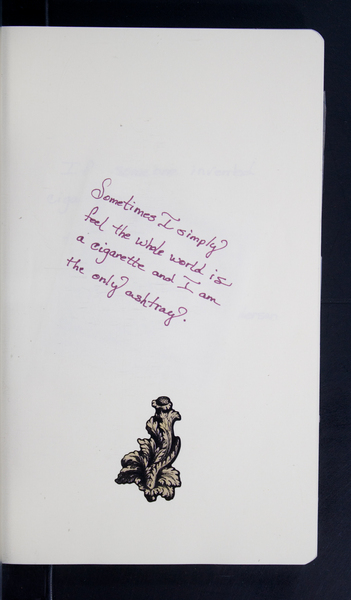 Sometimes I simply
feel the whole world is
a cigarette and I am
the only ashtray.